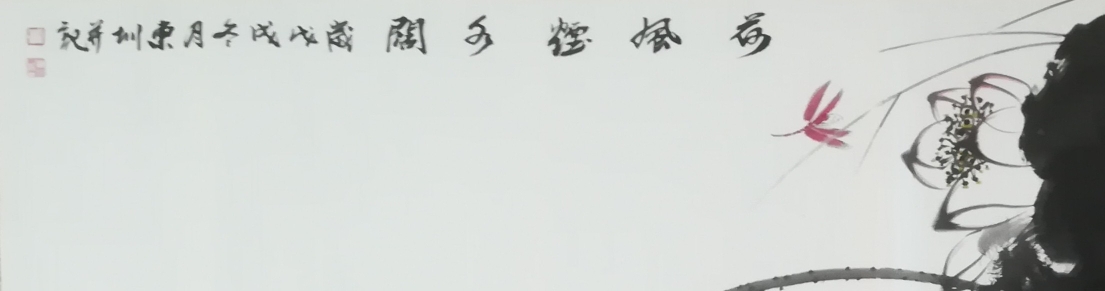 荷風煙水闊歲次戊戌冬月東圳并記